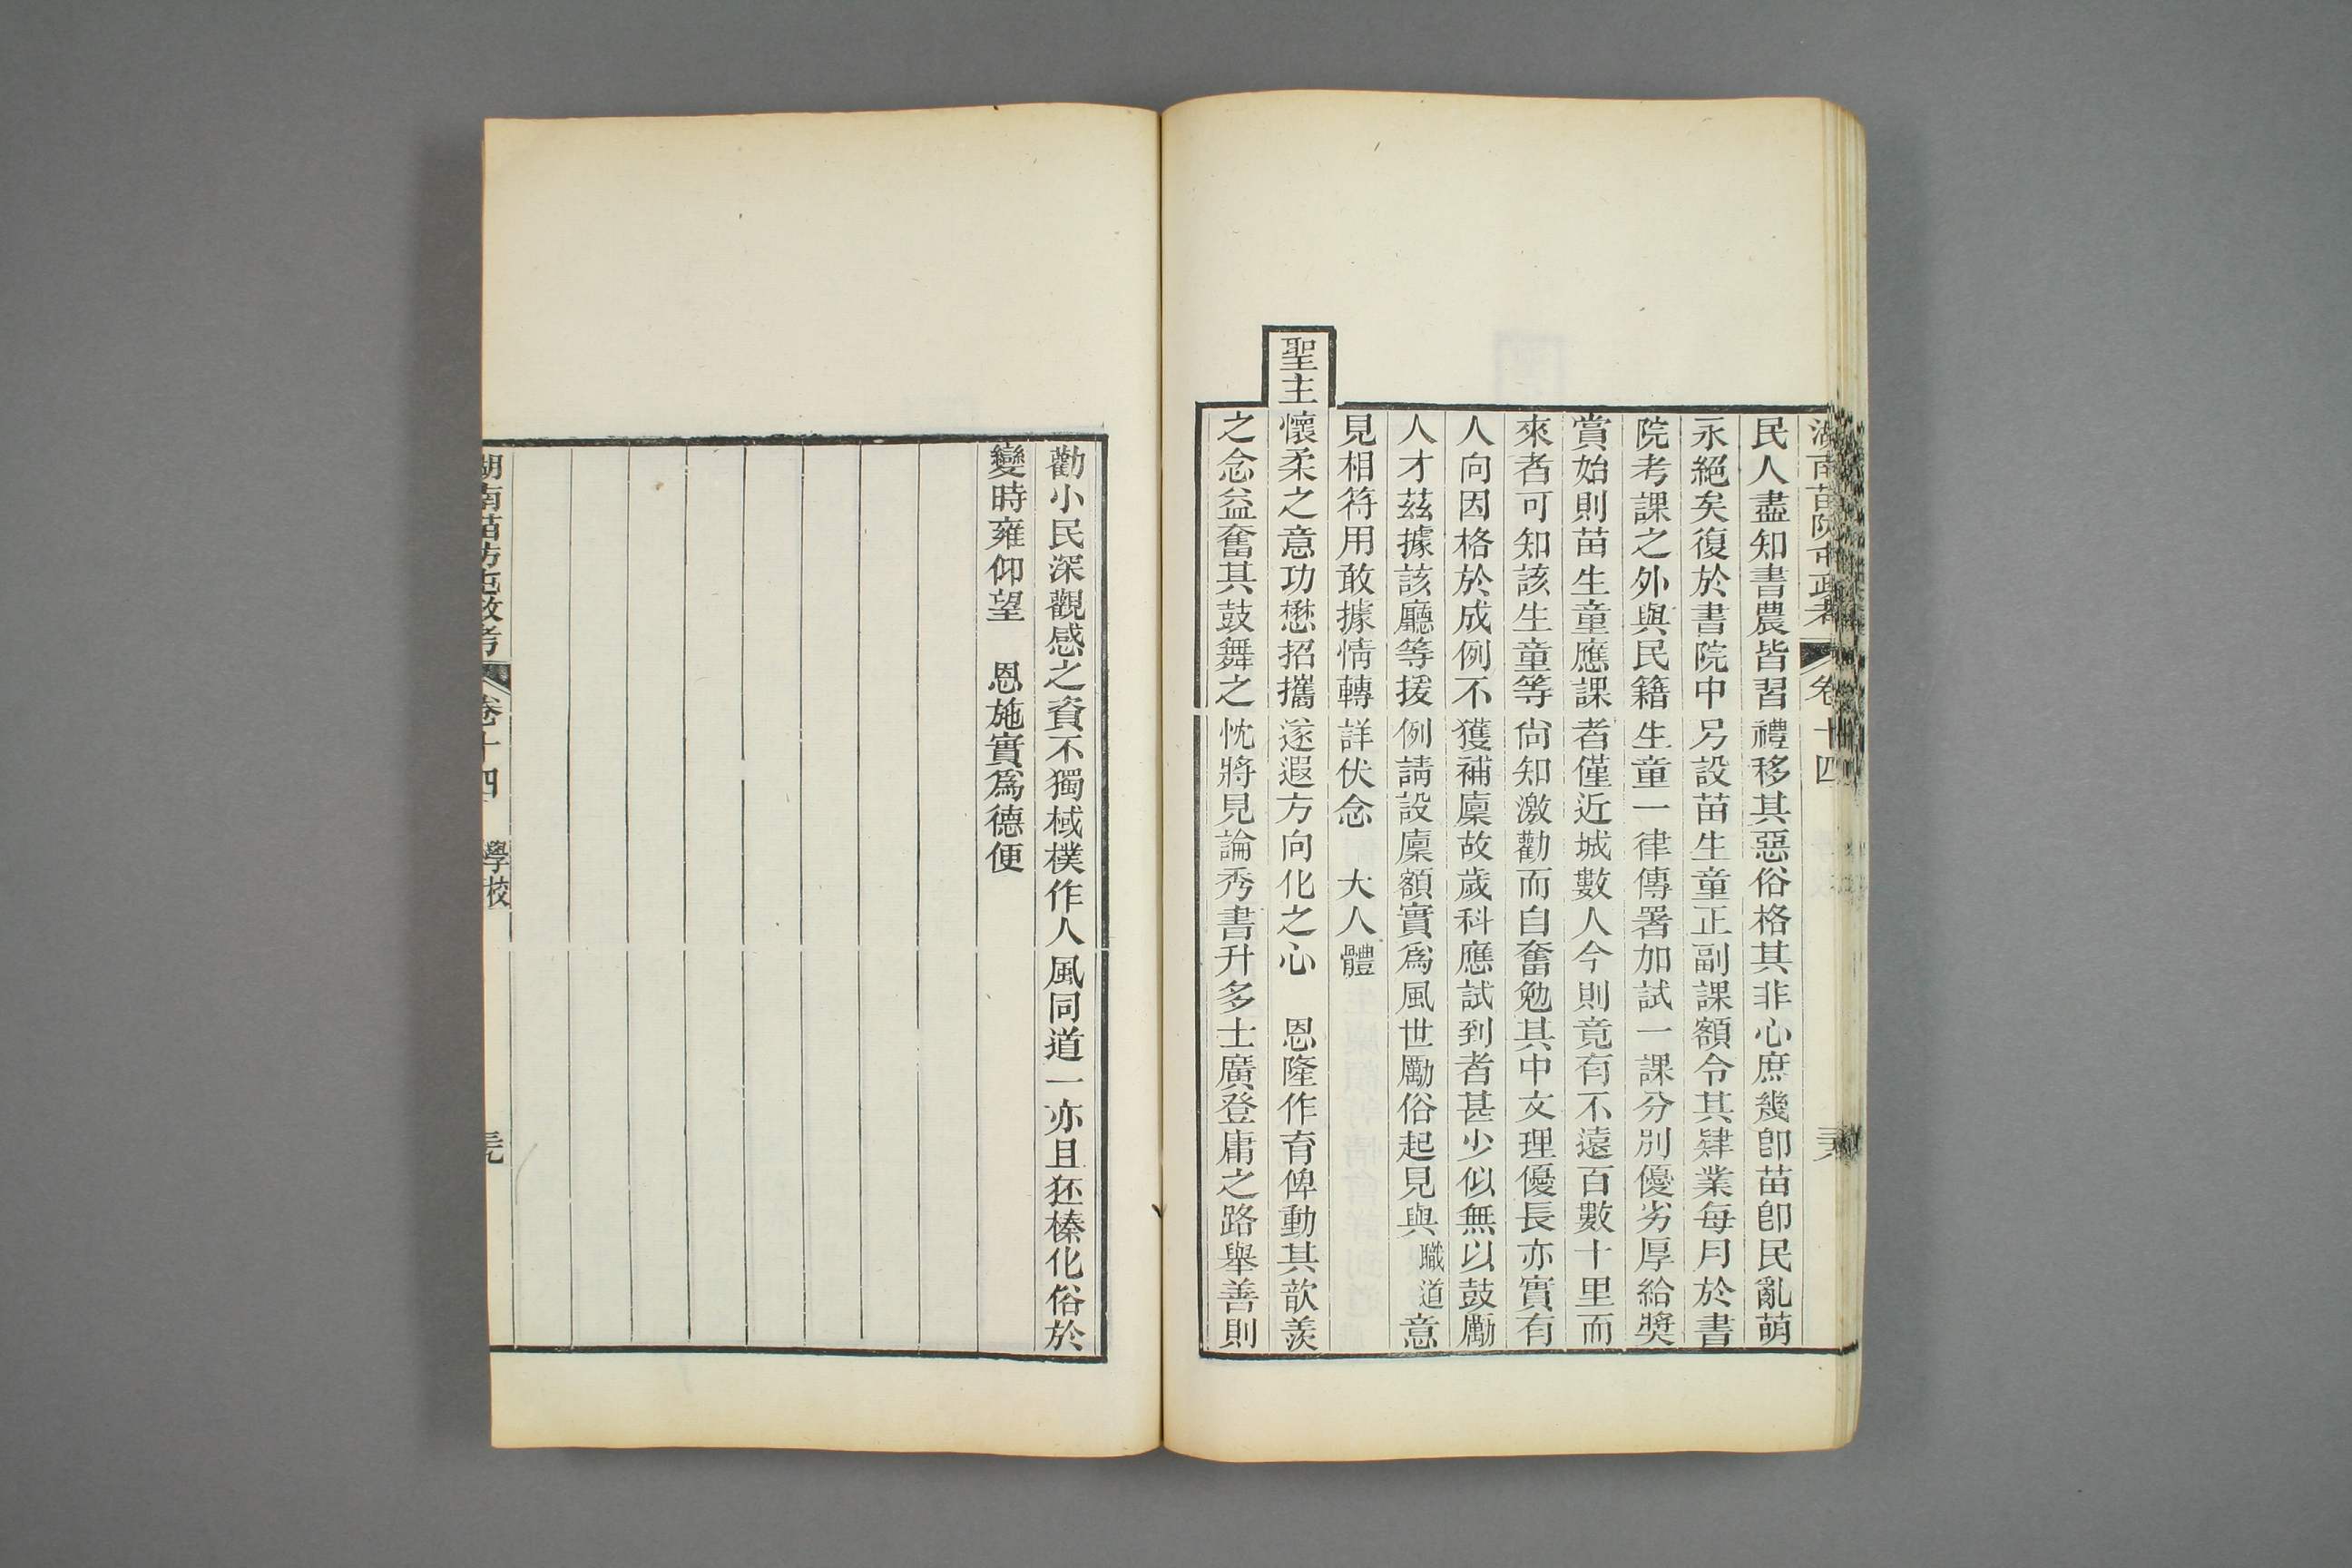 湖南苗防屯政考 卷十四
民人盡知書農皆習禮移其惡俗格其非心庶幾卽苗卽民亂萌
永絕矣復於書院中另設苗生童正副課額令其肄業每月於書
院考課之外與民籍生童一律傳署加試一課分別優劣厚給獎
賞始則苗生童應課者僅近城數人今則竟有不遠百數十里而
來者可知該生童等尙知激勸而自奮勉其中文理優長亦實有
人向因格於成例不獲補廩故歲科應試到者甚少似無以鼓勵
人才茲據該廳等援例請設廩額實爲風世勵俗起見與職道意
見相符用敢據情轉詳伏念 大人體
聖主懷柔之意功懋招攜遂遐方向化之心 恩隆作育俾動其歆羨
之念益奮其鼓舞之忱將見論秀書升多士廣登庸之路舉善則
勸小民深觀感之資不獨棫樸作人風同道一亦且狉榛化俗於
變時雍仰望 恩施實爲德便
湖南苗防屯政考 卷十四 學校 三九